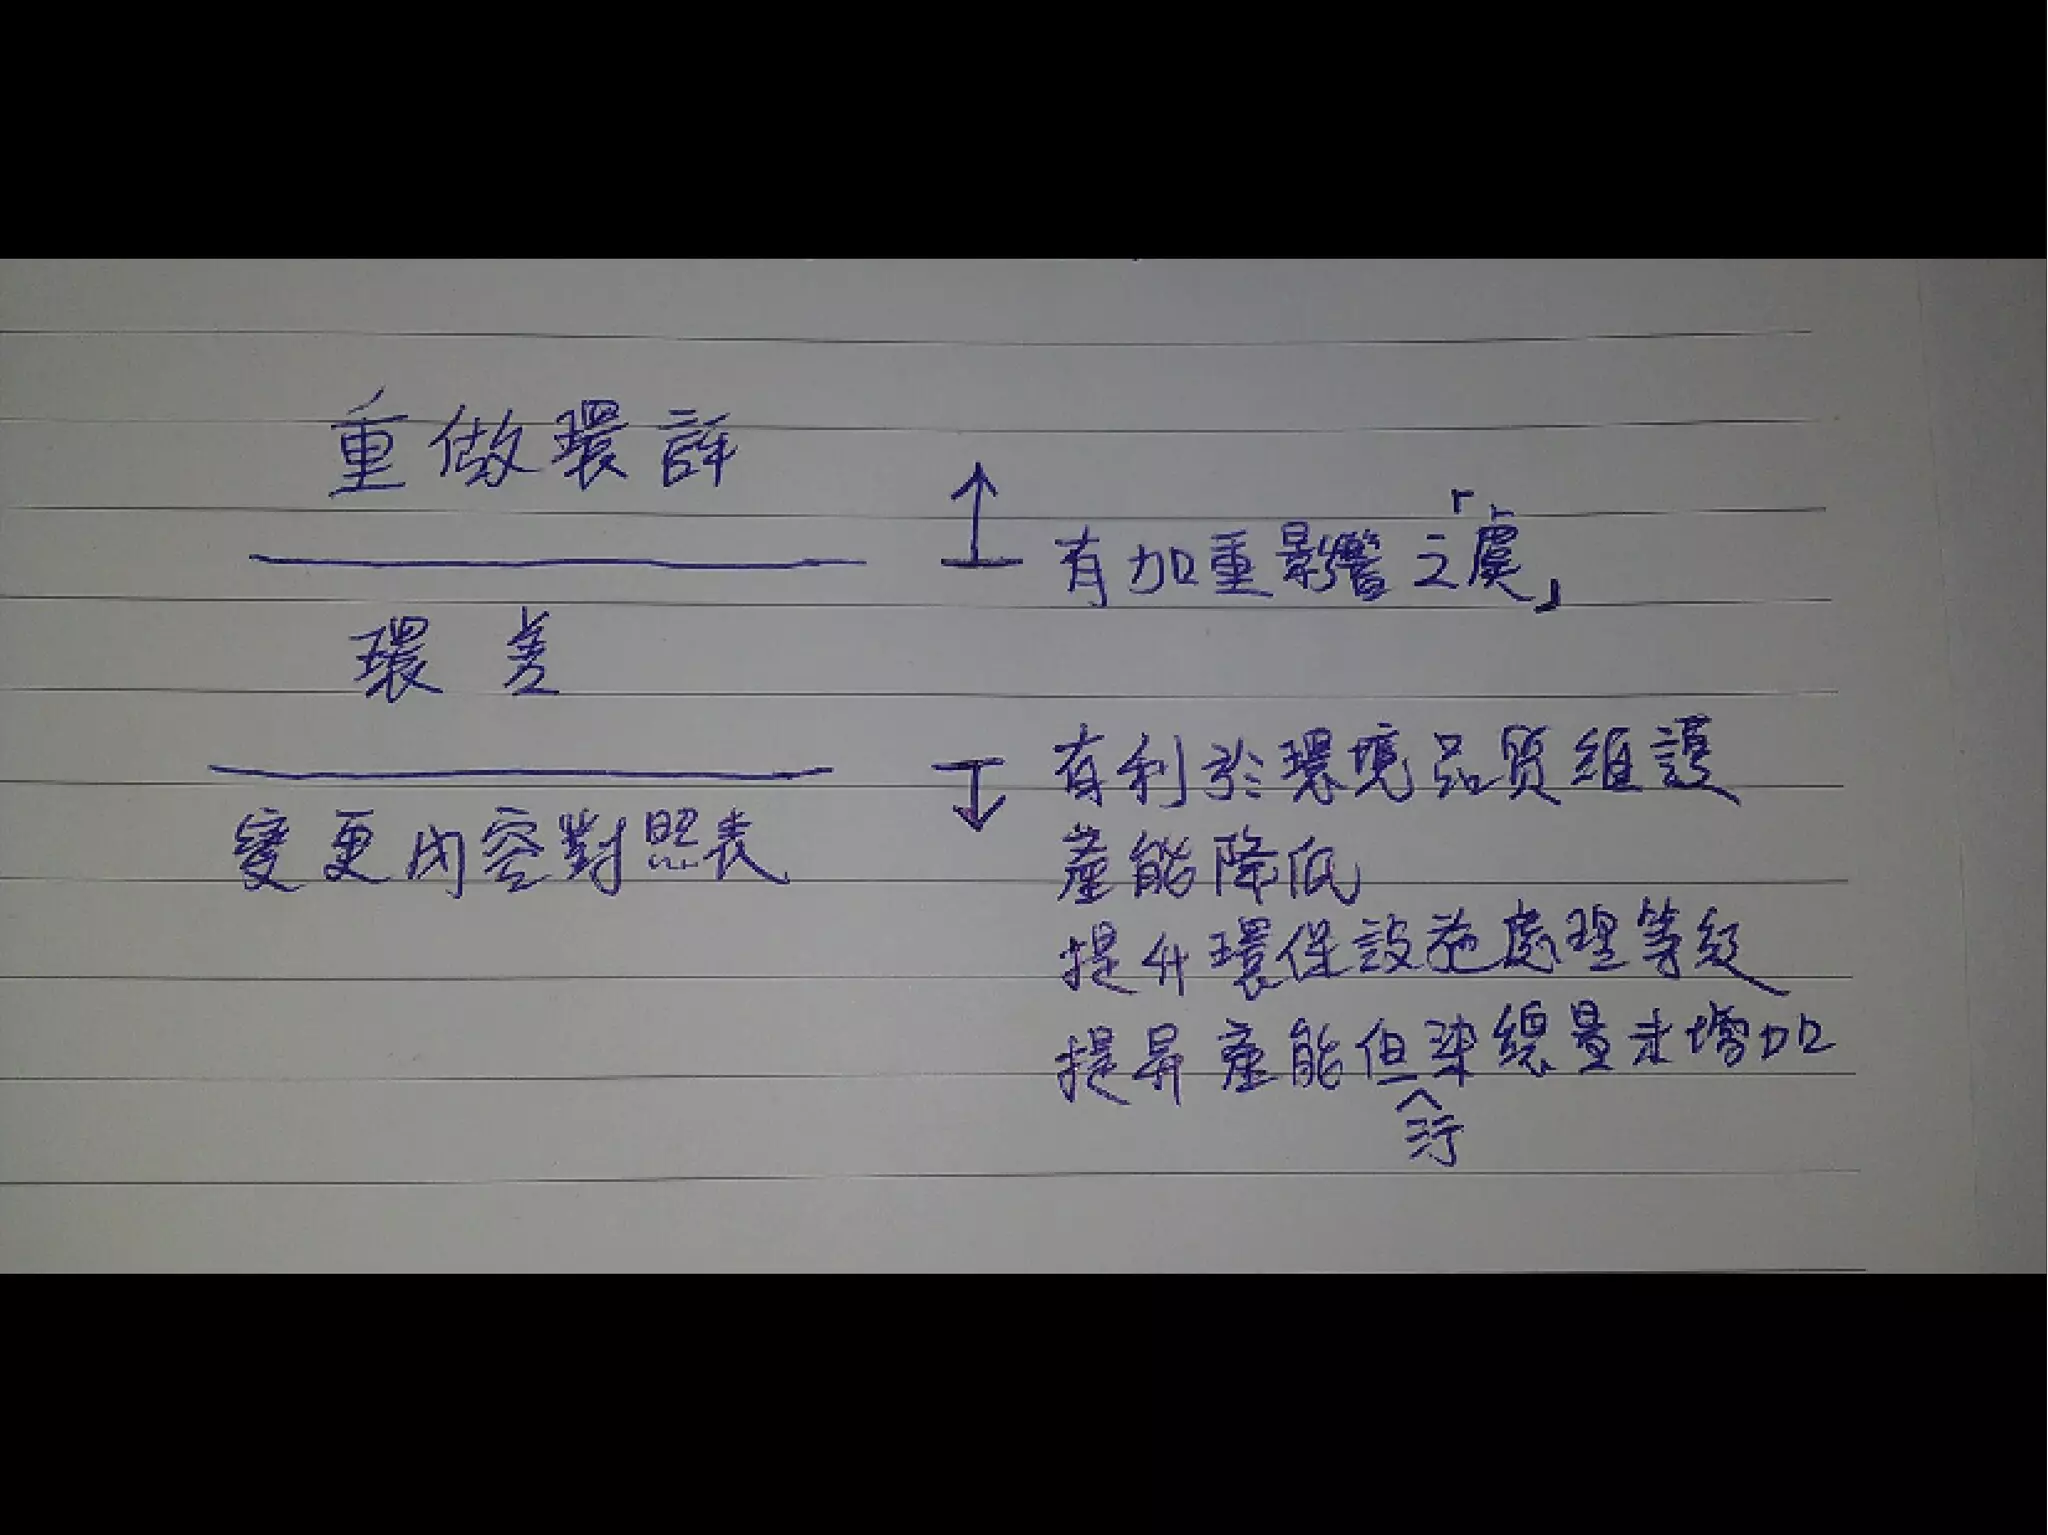 重做環評
有加重影響之「虞」
環差
有利於環境品質維護
變更內容對照表
產能降低
提升環保設施處理等級
提昇產能但污染總量未增加